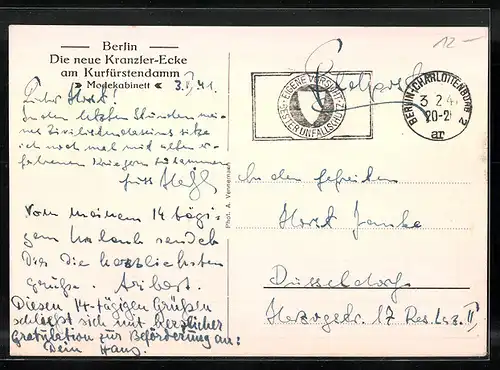 Berlin
Die neue Kranzler-Ecke
am Kurfürstendamm
» Modekabinett «
3.II.41.
12.-
Feldpost
EIGENE VORSICHT
BESTER UNFALLSCHUTZ
BERLIN-CHARLOTTENBURG 2
3 2 4
20-2
ar
Lieber Horst!
In den letzten Stunden mei-
nes Zivilistendaseins sitze
ich noch mal mit alten er-
fahrenen Kriegern zusammen
Von meinem 14 tägi-
gen Urlaub sendet
Dir die herzlichsten
Grüße. Aribert.
Diesen 14-tägigen Grüßen
schließt sich mit herzlicher
Gratulation zur Beförderung an:
Dein Hans.
Phot. A. Vennemann
An den Gefreiten
Horst Janke
Düsseldorf
Herzogstr. 17 Res. Laz. II